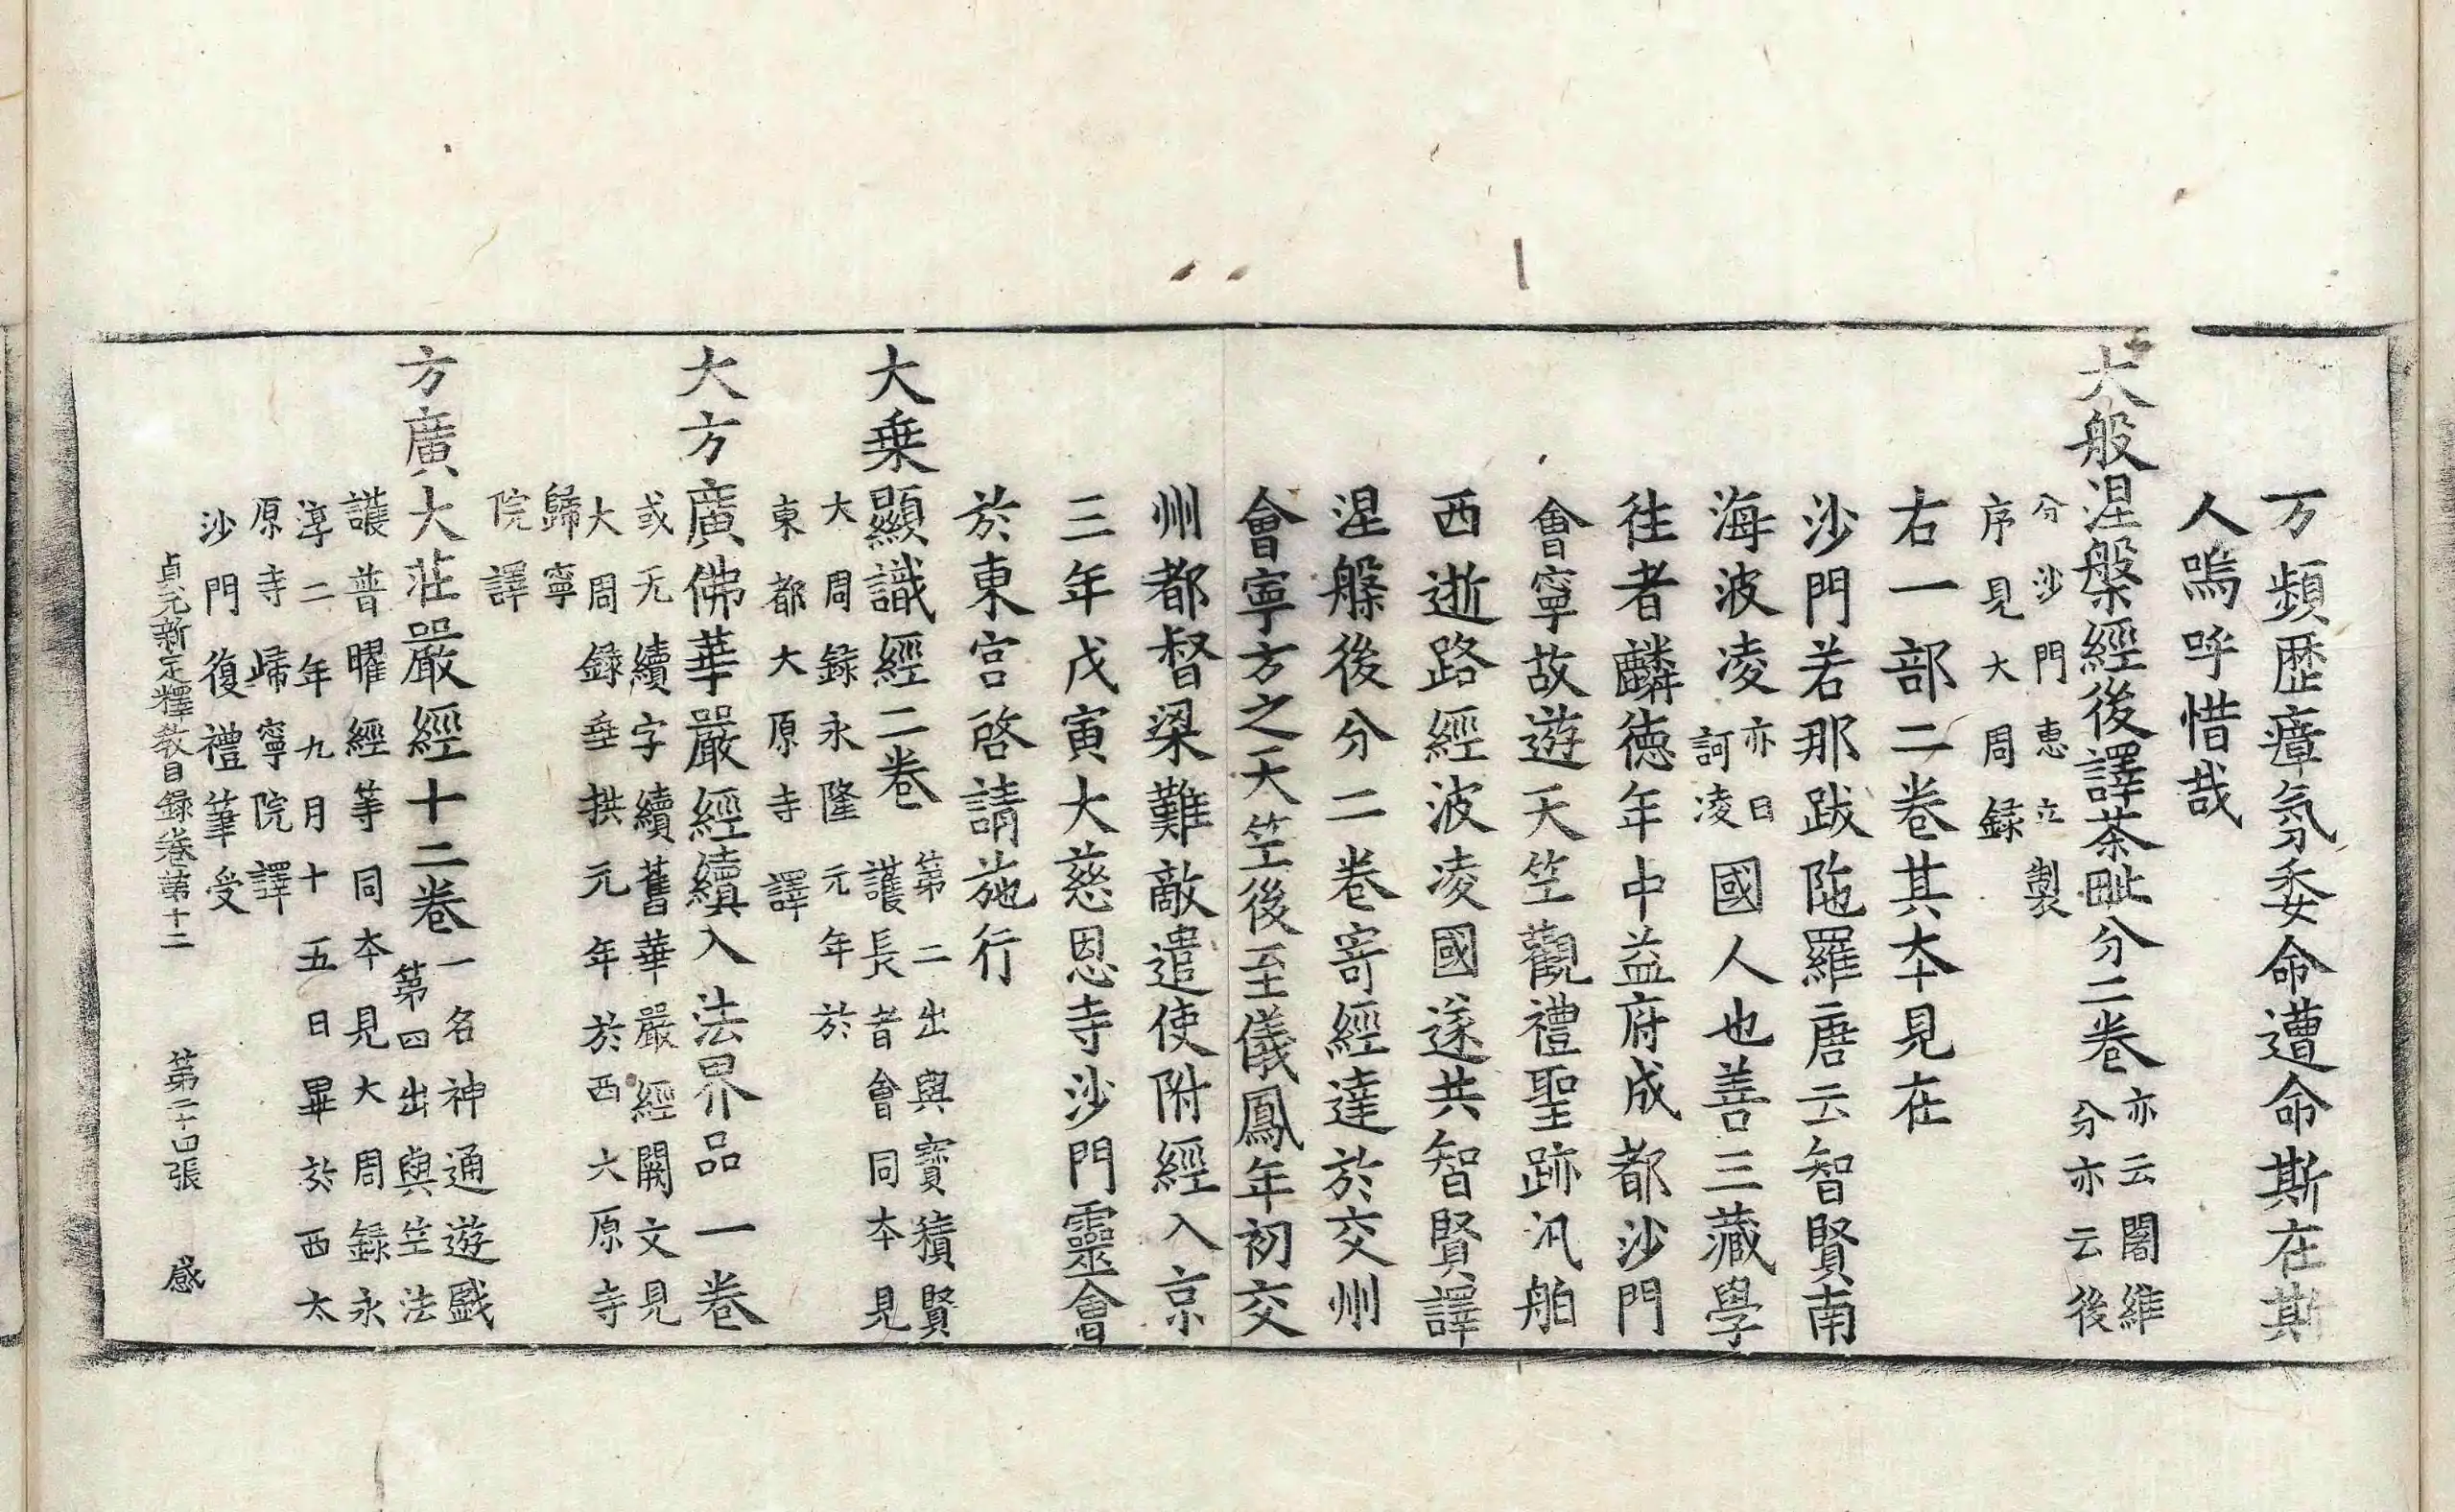 万頻歷瘴氛委命遭命斯在斯
人嗚呼惜哉
大般涅槃經後譯荼毗分二卷
亦云闍維
分亦云後
分沙門惠立製
序見大周録
右一部二卷其夲見在
沙門若那跋陁羅唐云智賢南
海波凌亦曰訶凌國人也善三藏學
徃者麟德年中益府成都沙門
會寧故遊天竺觀禮聖跡汎舶
西逝路經波凌國遂共智賢譯
涅槃後分二卷寄經達於交州
會寧方之天竺後至儀鳳年初交
州都督梁難敵遣使附經入京
三年戊寅大慈恩寺沙門靈會
於東宮啓請施行
大乗顯識經二卷
第二出與寶積賢
護長者會同夲見
大周録永隆元年於
東都大原寺譯
大方廣佛華嚴經續入法界品一卷
或无續字續舊華嚴經闕文見
大周錄垂拱元年於西大原寺
歸寧
院譯
方廣大莊嚴經十二卷
一名神通遊戲
第四出與竺法
護普曜經等同夲見大周録永
淳二年九月十五日畢於西太
原寺歸寧院譯
沙門復禮筆受
貞元新定釋教目録卷第十二 第二十四張 感